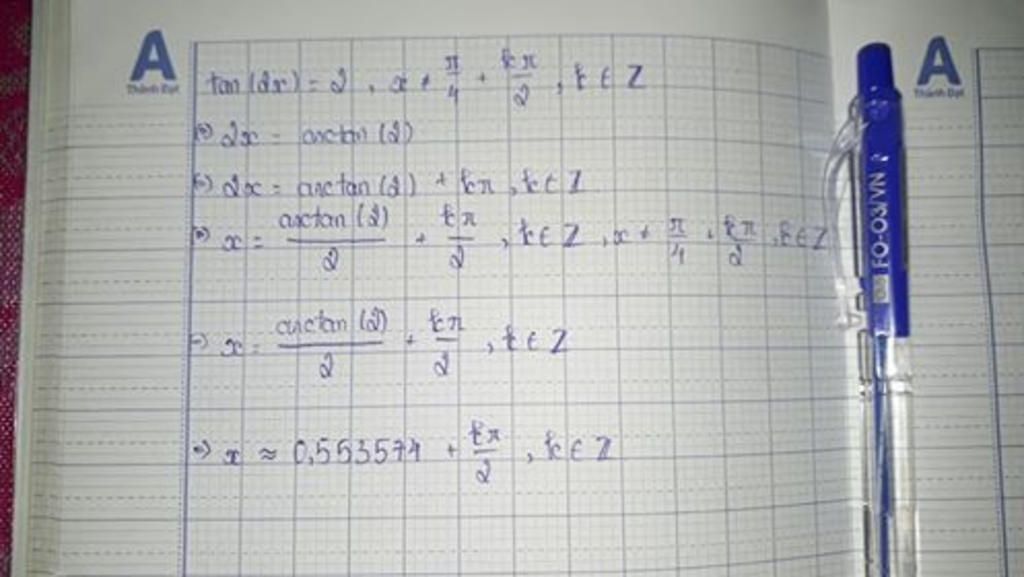 A A
Thành Đạt Thành Đạt
tan (2x) = 2 , x ≠ π/4 + kπ/2 , k ∈ Z
⇔ 2x = arctan (2)
⇔ 2x = arctan (2) + kπ , k ∈ Z
⇔ x = arctan (2)/2 + kπ/2 , k ∈ Z , x ≠ π/4 + kπ/2 , k ∈ Z
⇔ x = arctan (2)/2 + kπ/2 , k ∈ Z
⇔ x ≈ 0,553574 + kπ/2 , k ∈ Z
FO-03/VN